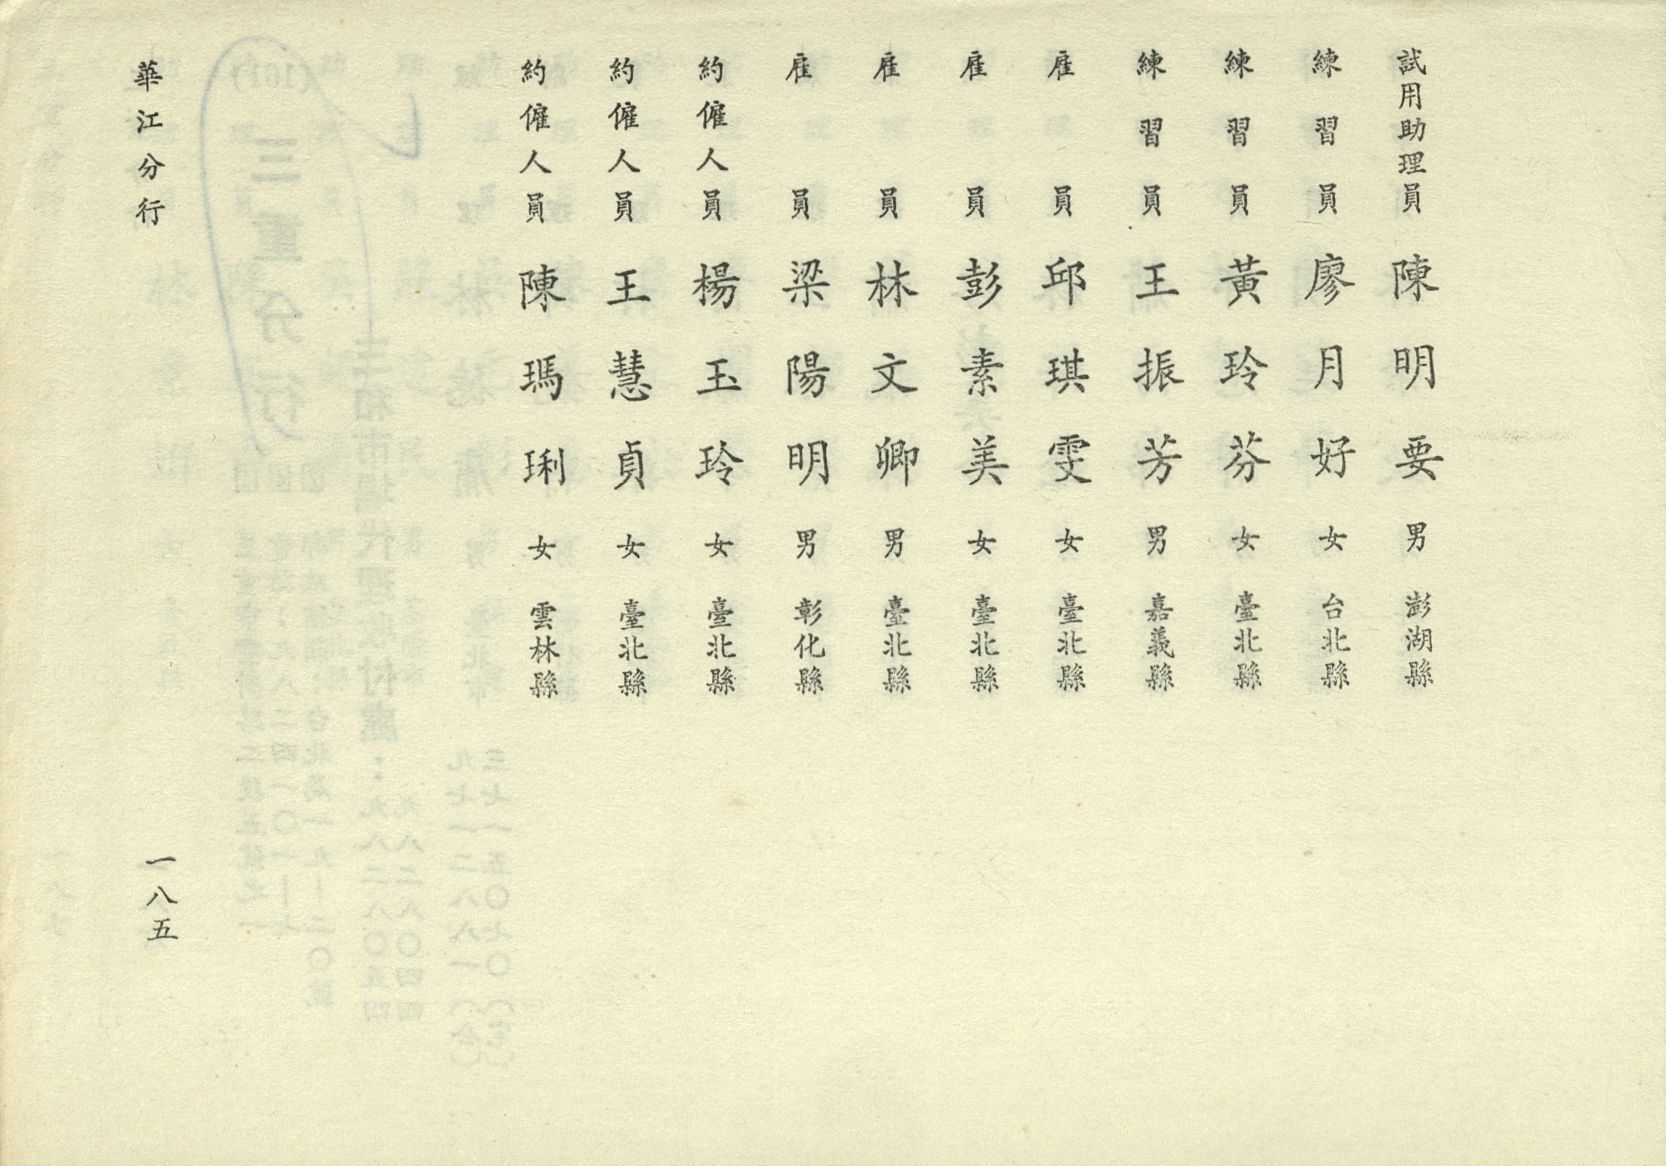 試用助理員 陳明要 男 澎湖縣
練習員 廖月好 女 台北縣
練習員 黃玲芬 女 臺北縣
練習員 王振芳 男 嘉義縣
雇員 邱琪雯 女 臺北縣
雇員 彭素美 女 臺北縣
雇員 林文卿 男 臺北縣
雇員 梁陽明 男 彰化縣
約僱人員 楊玉玲 女 臺北縣
約僱人員 王慧貞 女 臺北縣
約僱人員 陳瑪琍 女 雲林縣
華江分行
一八五